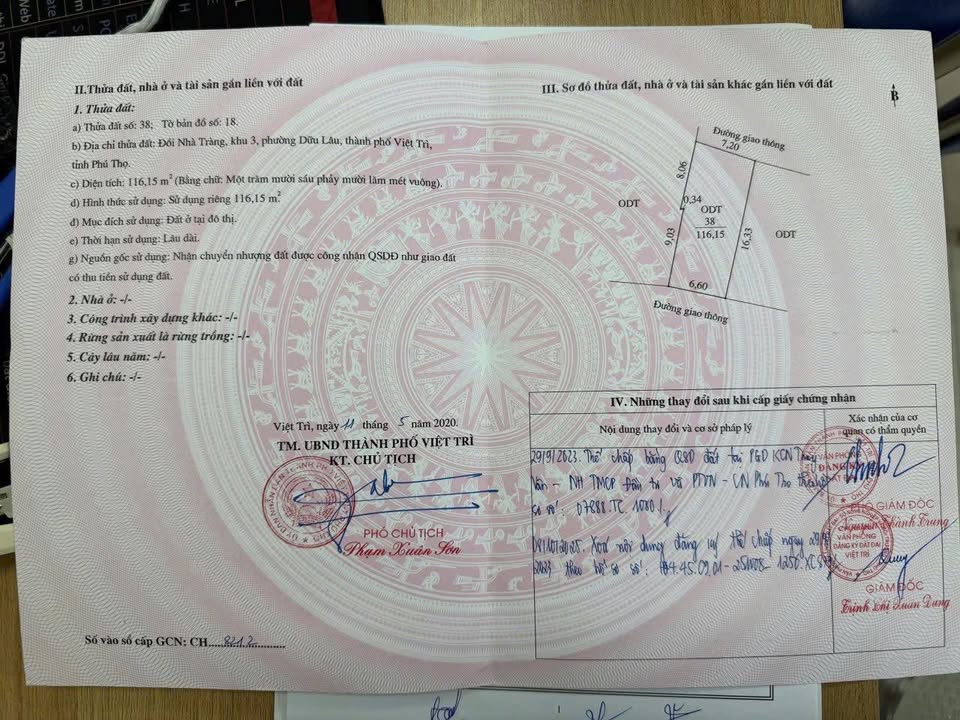 II.Thửa đất, nhà ở và tài sản gắn liền với đất
1. Thửa đất:
a) Thửa đất số: 38; Tờ bản đồ số: 18.
b) Địa chỉ thửa đất: Đồi Nhà Tràng, khu 3, phường Dữu Lâu, thành phố Việt Trì,
tỉnh Phú Thọ.
c) Diện tích: 116,15 m² (Bằng chữ: Một trăm mười sáu phảy mười lăm mét vuông).
d) Hình thức sử dụng: Sử dụng riêng 116,15 m².
đ) Mục đích sử dụng: Đất ở tại đô thị.
e) Thời hạn sử dụng: Lâu dài.
g) Nguồn gốc sử dụng: Nhận chuyển nhượng đất được công nhận QSDĐ như giao đất
có thu tiền sử dụng đất.
2. Nhà ở: -/-
3. Công trình xây dựng khác: -/-
4. Rừng sản xuất là rừng trồng: -/-
5. Cây lâu năm: -/-
6. Ghi chú: -/-
Việt Trì, ngày 11 tháng 5 năm 2020.
TM. UBND THÀNH PHỐ VIỆT TRÌ
KT. CHỦ TỊCH
PHÓ CHỦ TỊCH
Phạm Xuân Sơn
Số vào sổ cấp GCN: CH...8212...
III. Sơ đồ thửa đất, nhà ở và tài sản khác gắn liền với đất
B
Đường giao thông
7,20
8,06
ODT
0,34
ODT
38
116,15
9,03
16,33
ODT
6,60
Đường giao thông
IV. Những thay đổi sau khi cấp giấy chứng nhận
Nội dung thay đổi và cơ sở pháp lý
Xác nhận của cơ
quan có thẩm quyền
29/9/2023. Thế chấp bằng QSD đất tại PGD KCN Thụy
Vân - NH TMCP Đầu tư và PTVN - CN Phú Thọ theo hồ
sơ số: 07288.TC.
PHÓ GIÁM ĐỐC
Thành Trung
Xoá nội dung đăng ký thế chấp ngày 29/9/
2023 theo hồ sơ số:
VĂN PHÒNG
ĐĂNG KÝ ĐẤT ĐAI
VIỆT TRÌ
GIÁM ĐỐC
Trịnh Thị Xuân Dung